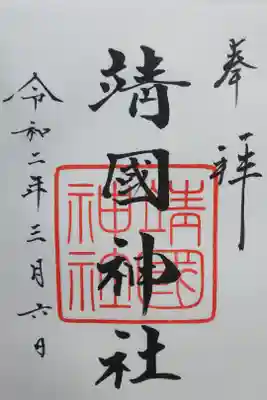 奉拝
靖國神社
靖國神社
令和二年三月六日